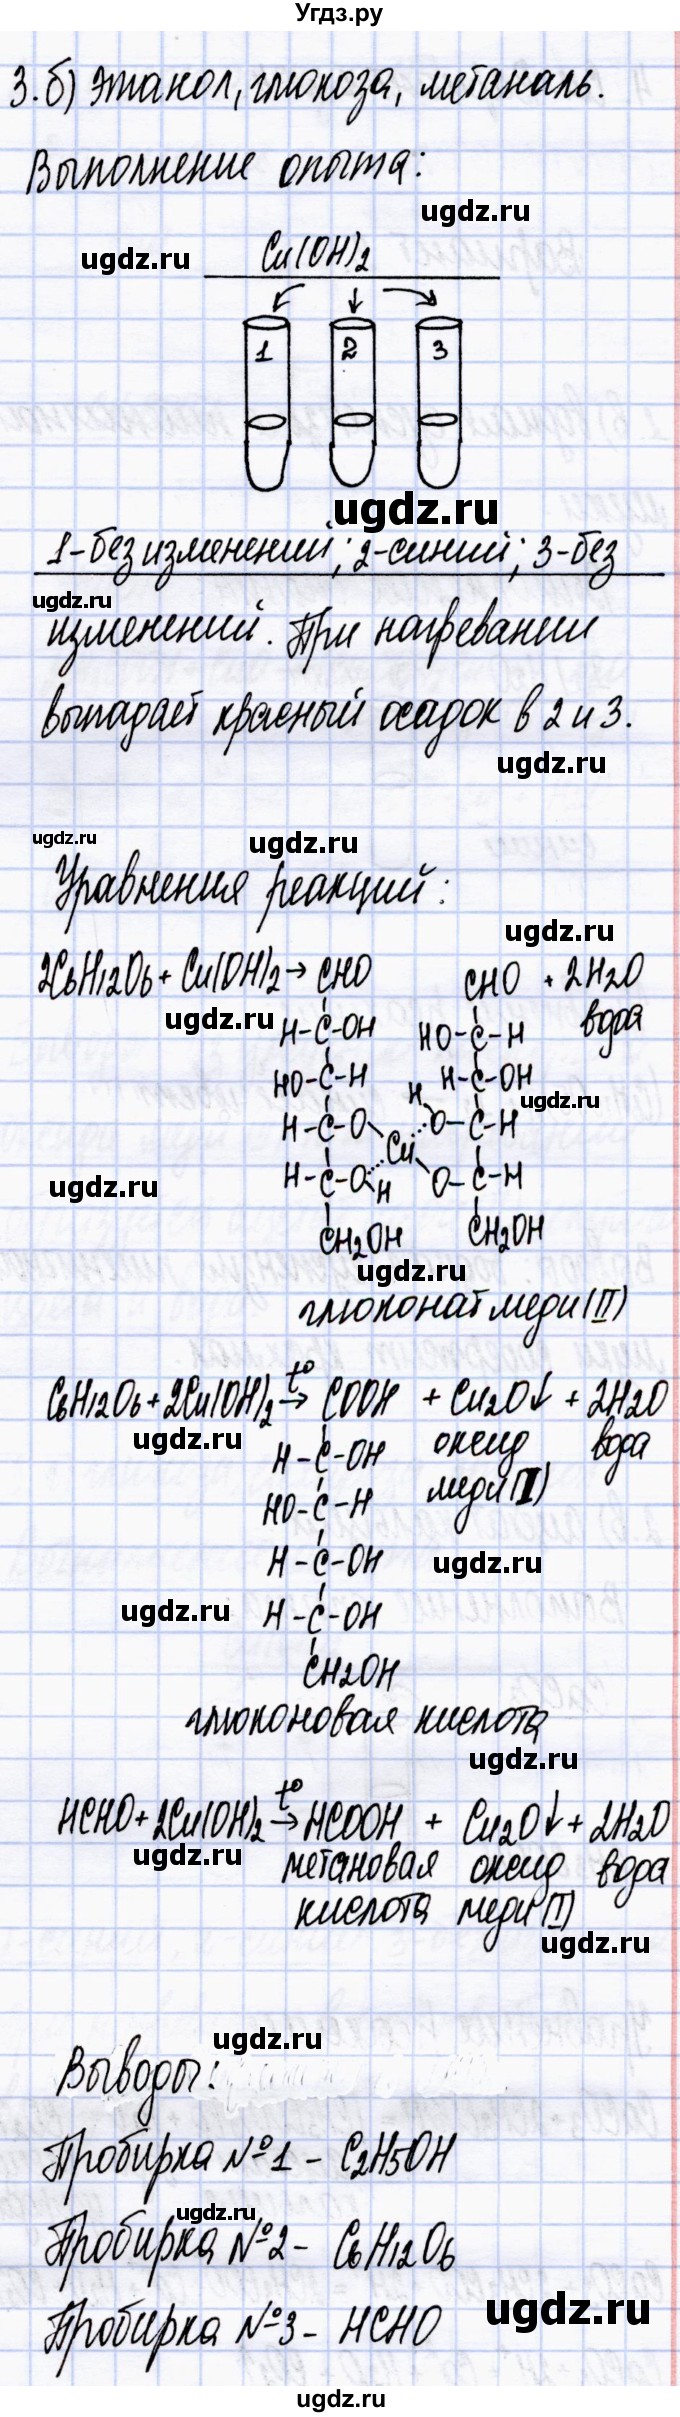 Угдз.ру
3.б) Этанол, глюкоза, метаналь.
Выполнение опыта:
ugdz.ru
ugdz.ru
Cu(OH)2
1 2 3
ugdz.ru
1-без изменений; 2-синий; 3-без
ugdz.ru
изменений. При нагревании
выпадает красный осадок в 2 и 3.
ugdz.ru
ugdz.ru
ugdz.ru
Уравнения реакций:
ugdz.ru
2C6H12O6 + Cu(OH)2 → CHO CHO + 2H2O
ugdz.ru
вода
H-C-OH HO-C-H
HO-C-H H-C-OH
ugdz.ru
H-C-O H O-C-H
Cu
H-C-O H O-C-H
ugdz.ru
CH2OH CH2OH
ugdz.ru
глюконат меди (II)
t°
C6H12O6 + 2Cu(OH)2 → COOH + Cu2O↓ + 2H2O
ugdz.ru
оксид вода
H-C-OH
меди (I)
HO-C-H
H-C-OH
ugdz.ru
ugdz.ru
H-C-OH
CH2OH
глюконовая кислота
ugdz.ru
t°
HCHO + 2Cu(OH)2 → HCOOH + Cu2O↓ + 2H2O
ugdz.ru
метановая оксид вода
кислота меди (I)
ugdz.ru
ugdz.ru
Выводы:
Пробирка №1 - C2H5OH
ugdz.ru
Пробирка №2 - C6H12O6
ugdz.ru
Пробирка №3 - HCHO
ugdz.ru